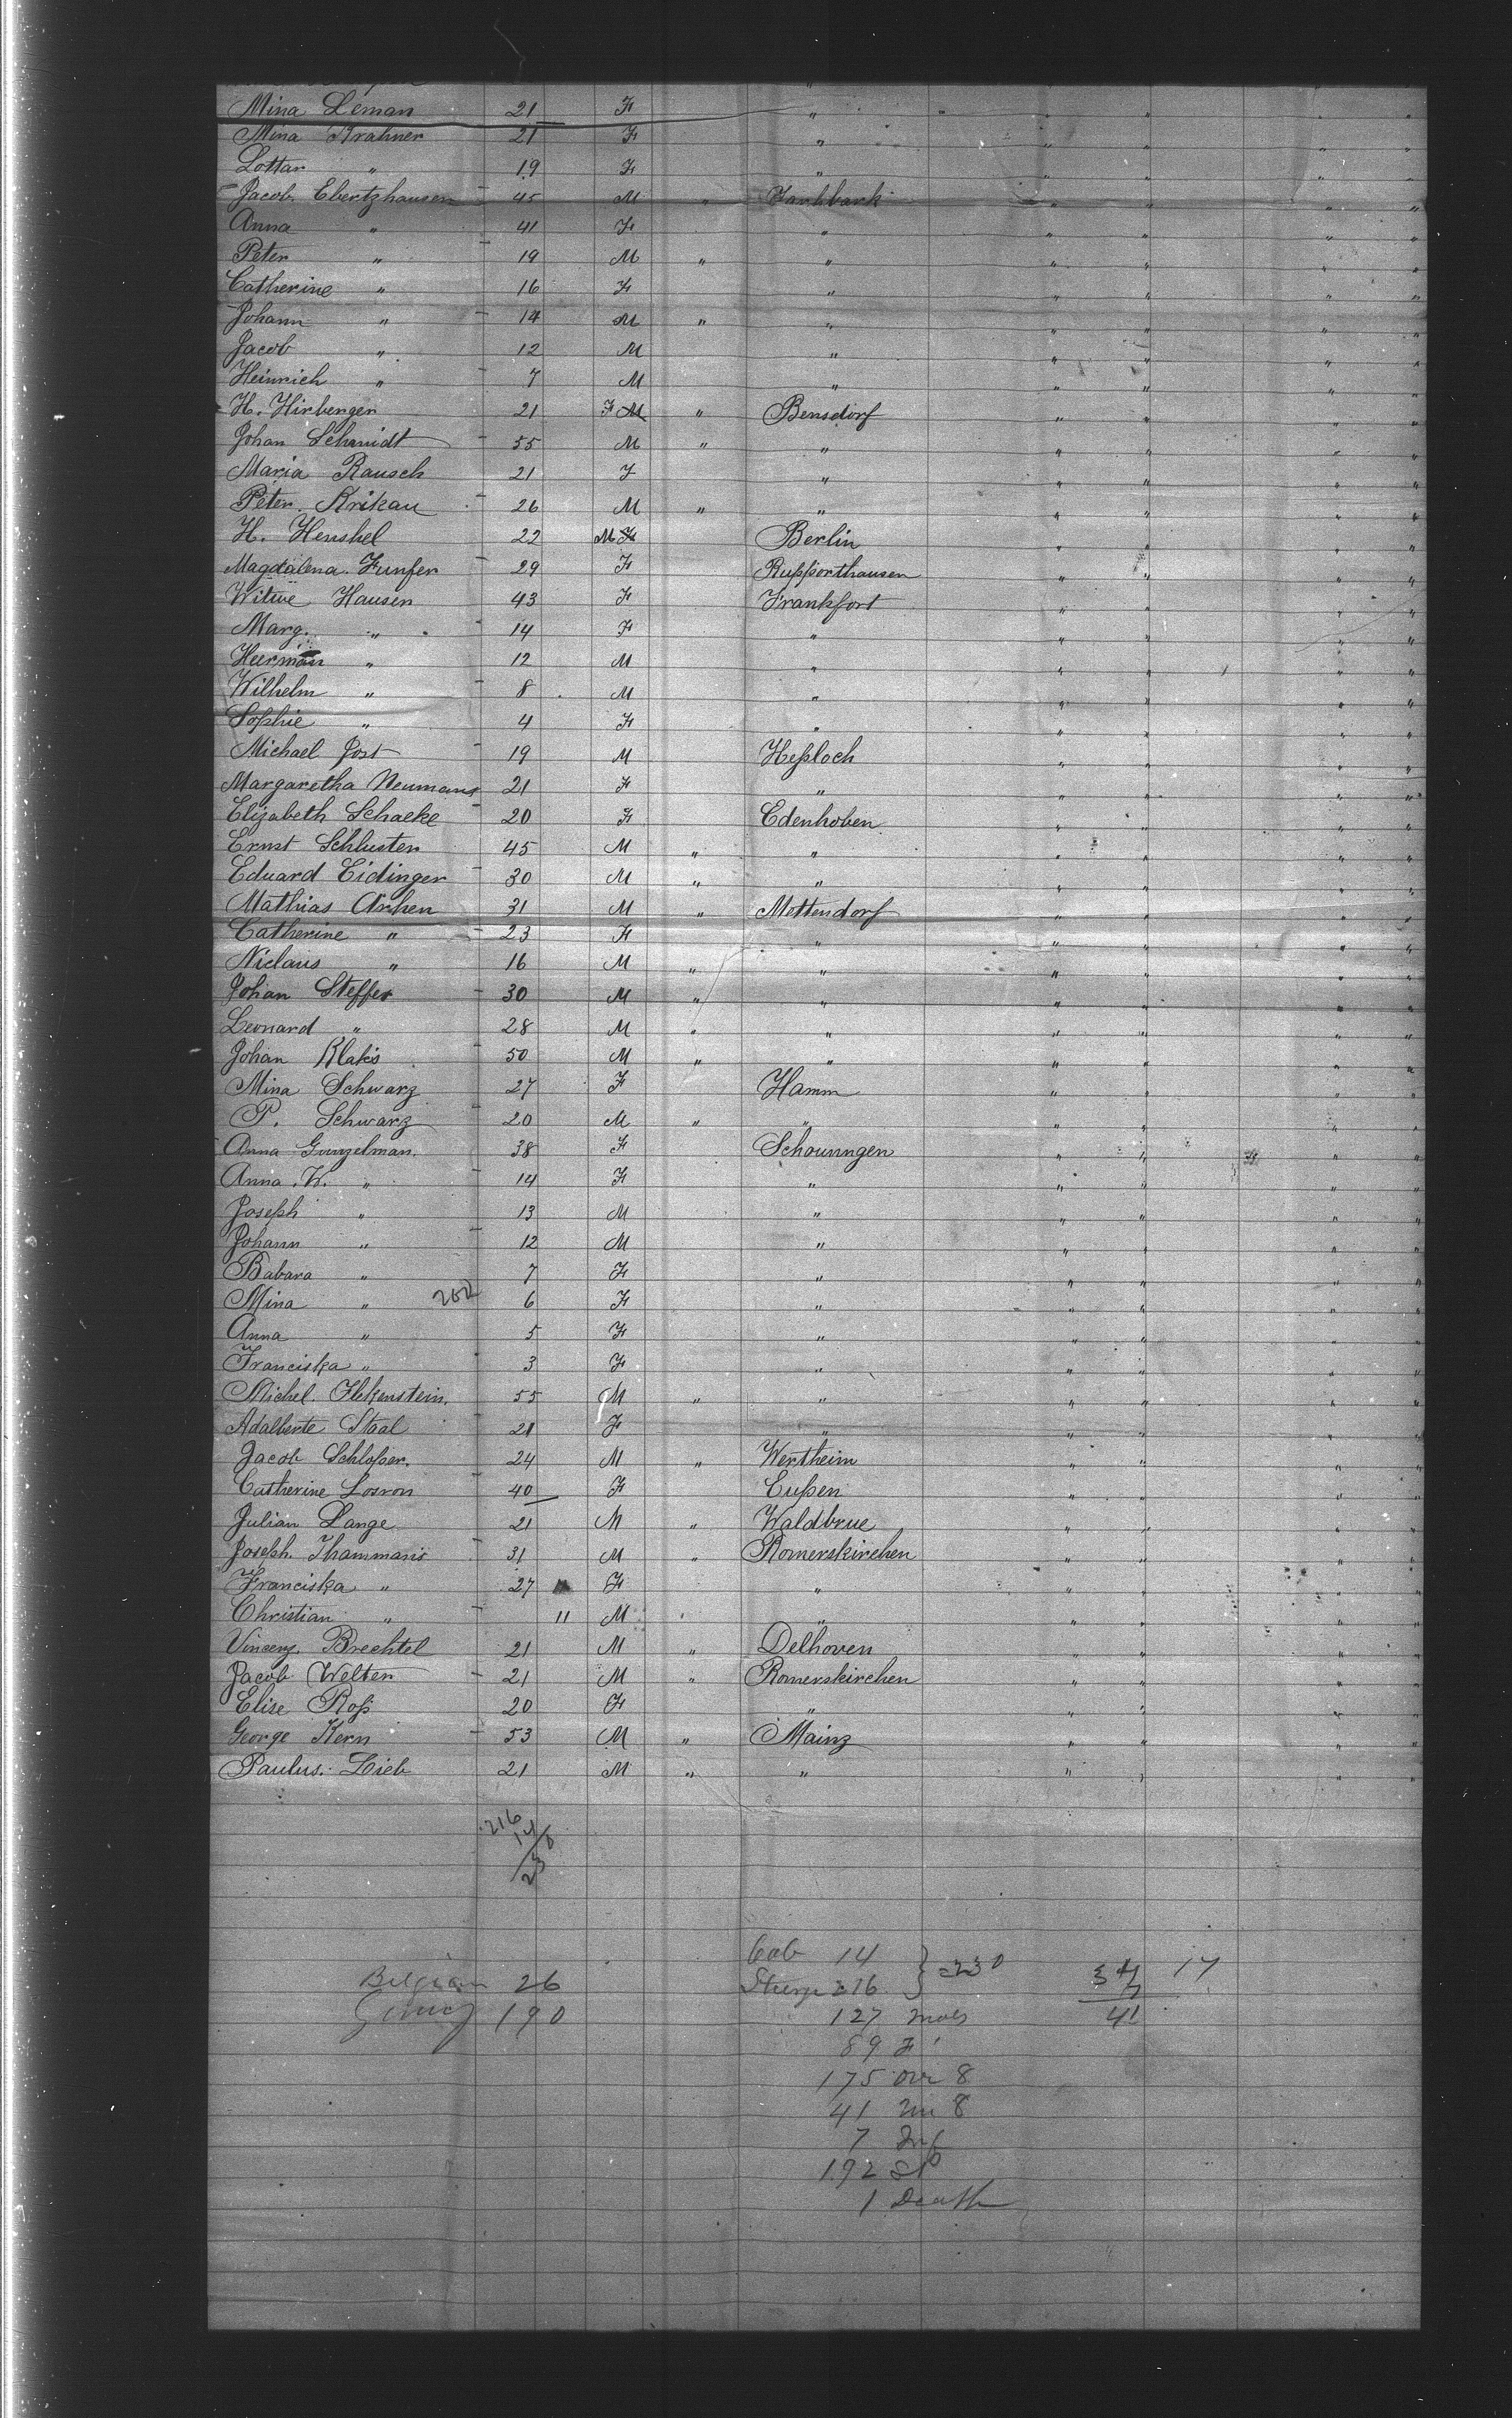 Mina Leman 21 F " " " " " "
Mina Krahner 21 F " " " " " "
Lottar " 19 F " " " " "
Jacob Ebertzhausen 45 M " " " " "
Anna " 41 F " " " " "
Peter " 19 M " " " " " "
Catherine " 16 F " " " " "
Johann " 14 M " " " " " "
Jacob " 12 M " " " " "
Heinrich " 7 M " " " " "
H. Hirberger 21 F M " Bensdorf " " " "
Johan Schmidt 55 M " " " " " "
Maria Rausch 21 F " " " " "
Peter Krikau 26 M " " " " " "
H. Henshel 22 M F Berlin " " " "
Magdalena Funfer 29 F Rupporthausen " " " "
Witwe Hausen 43 F Frankfort " " " "
Marg. " 14 F " " " " "
Heerman " 12 M " " " " "
Wilhelm " 8 M " " " " "
Sophie " 4 F " " " " "
Michael Jost 19 M Heßloch " " " "
Margaretha Neumans 21 F " " " " "
Elizabeth Schaeke 20 F Edenhoben " " " "
Ernst Schlusten 45 M " " " " " "
Eduard Eidinger 30 M " " " " " "
Mathias Arhen 31 M " Mettendorf " " " "
Catherine " 23 F " " " " "
Niclaus " 16 M " " " " " "
Johan Steffer 30 M " " " " " "
Leonard " 28 M " " " " " "
Johan Klakis 50 M " " " " " "
Mina Schwarz 27 F Hamm " " " "
P. Schwarz 20 M " " " " " "
Anna Gunzelman. 38 F Schounngen " " F " "
Anna W. " 14 F " " " " "
Joseph " 13 M " " " " "
Johann " 12 M " " " " "
Babara " 7 F " " " " "
Mina " 202 6 F " " " " "
Anna " 5 F " " " " "
Franciska " 3 F " " " " "
Michel. Flekenstein. 55 M " " " " " "
Adalberte Staal 21 F " " " " "
Jacob Schloßer. 24 M " Wertheim " " " "
Catherine Losron 40 F Eupen " " " "
Julian Lange 21 M " Waldbrue " " " "
Joseph Thammaris 31 M " Romerskirchen " " " "
Franciska " 27 F " " " " "
Christian " 11 M " " " " " "
Vincenz Brechtel 21 M " Delhoven " " " "
Jacob Welter 21 M " Romerskirchen " " " "
Elise Roß 20 F " " " " "
George Kern 53 M " Mainz " " " "
Paulus. Lieb 21 M " " " " " "
216
14
230
Cab 14 } = 230 34 17
Belgian 26 Steerge 216 7
190 127 Mals 41
89 F
175 ovr 8
41 un 8
7 Inf
192 St
1 Death